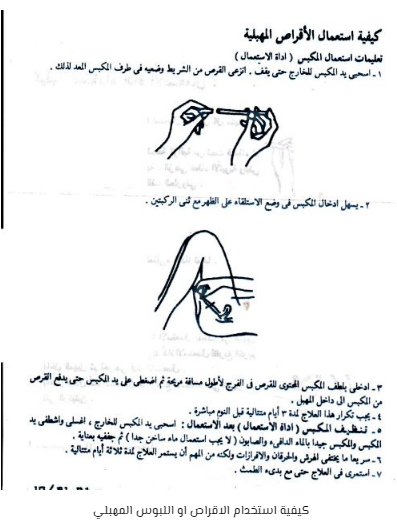 كيفية استعمال الأقراص المهبلية
تعليمات استعمال المكبس ( اداة الاستعمال )
١ - اسحبى يد المكبس للخارج حتى يقف . انزعى القرص من الشريط وضعيه فى طرف المكبس المعد لذلك .
٢ - يسهل ادخال المكبس فى وضع الاستلقاء على الظهر مع ثنى الركبتين .
٣ - ادخلى بلطف المكبس المحتوى للقرص فى الفرج لأطول مسافة مريحة ثم اضغطى على يد المكبس حتى يدفع القرص
من المكبس الى داخل المهبل .
٤ - يجب تكرار هذا العلاج لمدة ٣ أيام متتالية قبل النوم مباشرة .
٥ - تنظيف المكبس ( اداة الاستعمال ) بعد الاستعمال : اسحبى يد المكبس للخارج ، اغسلى واشطفى يد
المكبس والمكبس جيدا بالماء الدافىء والصابون ( لا يجب استعمال ماء ساخن جدا ) ثم جففيه بعناية .
٦ - سريعا ما يختفى الهرش والحرقان والافرازات ولكنه من المهم أن يستمر العلاج لمدة ثلاثة أيام متتالية .
٧ - استمرى فى العلاج حتى مع بدىء الطمث .
كيفية استخدام الاقراص او اللبوس المهبلي